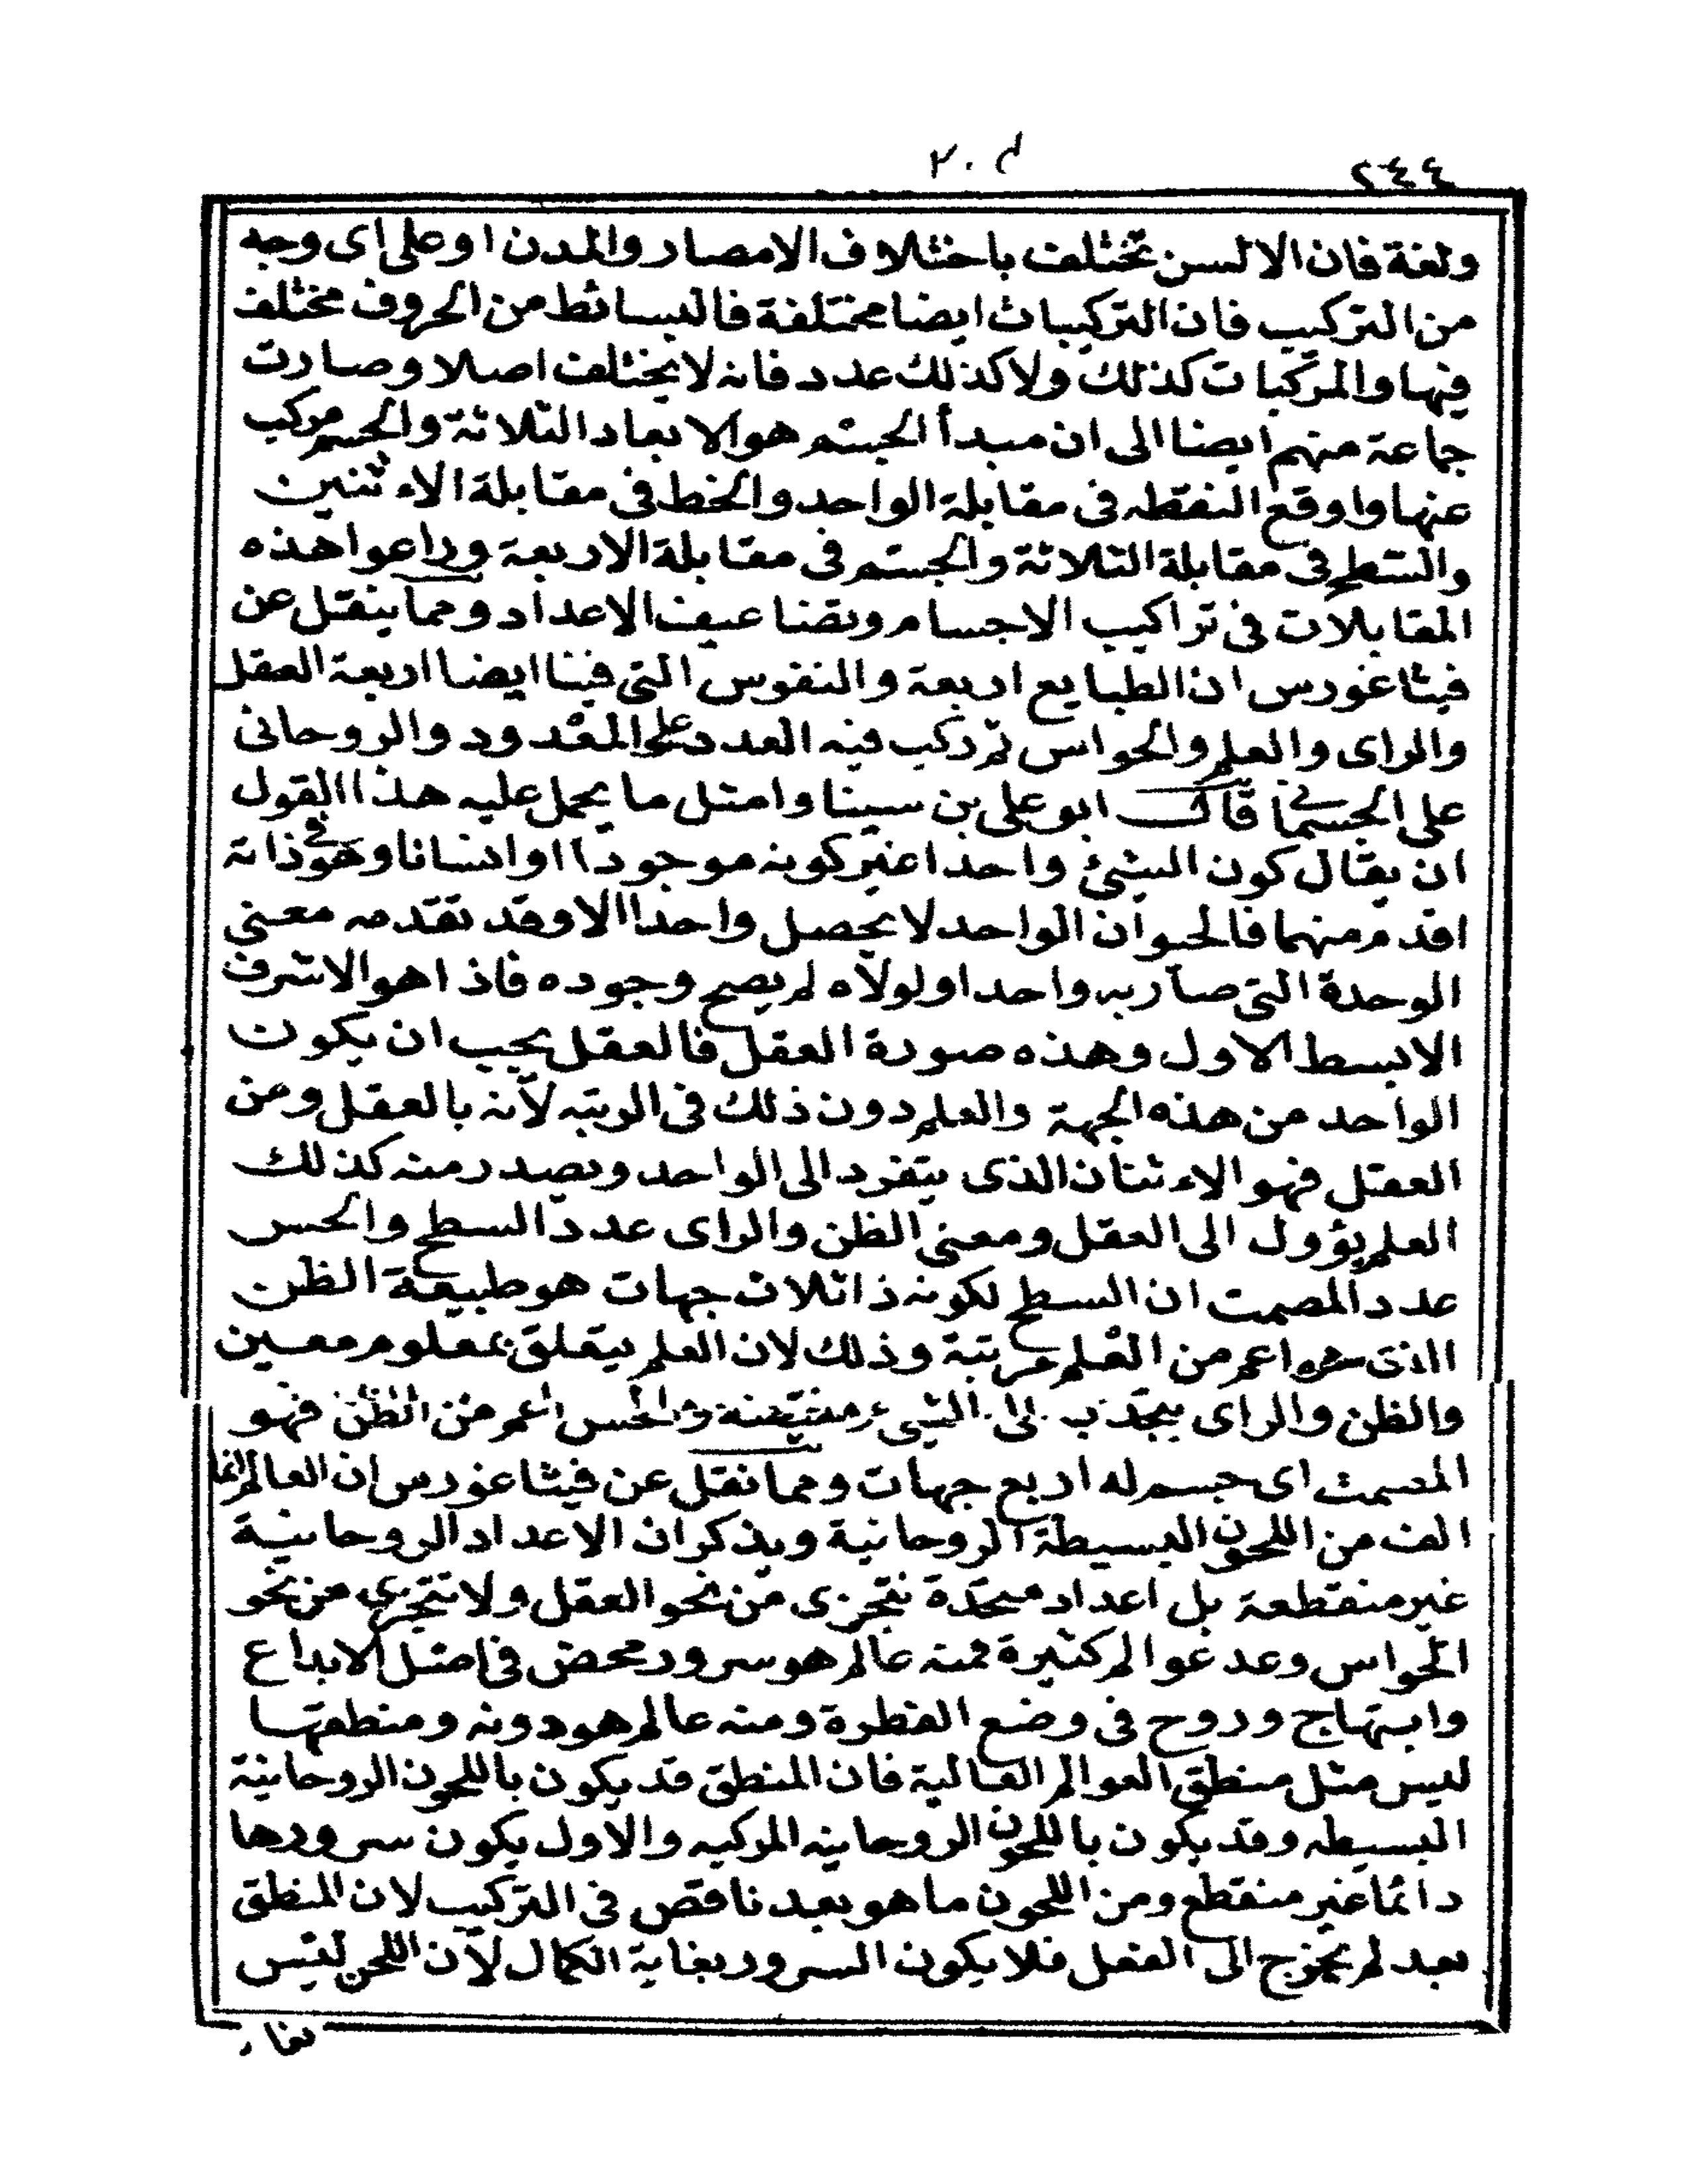 ٢٤٤
ولغة فان الالسن تختلف باختلاف الامصار والمدن او على اى وجه
من التركيب فان التركيبات ايضا مختلفة فالبسائط من الحروف مختلف
فيها والمركبات كذلك ولا كذلك عدد فانه لا يختلف اصلا وصارت
جماعة منهم ايضا الى ان مبدأ الجسم هو الابعاد الثلاثة والجسم مركب
عنها واوقع النقطه فى مقابلة الواحد والخط فى مقابلة الاءثنين
والسطح فى مقابلة الثلاثة والجسم فى مقابلة الاربعة وراعوا هذه
المقابلات فى تراكيب الاجسام وتضاعيف الاعداد ومما ينقل عن
فيثاغورس ان الطبايع اربعة والنفوس التى فينا ايضا اربعة العقل
والراى والعلم والحواس ثم ركب فيه العدد على المعدود والروحانى
على الجسمانى قال ابو على بن سينا وامثل ما يحمل عليه هذا القول
ان يقال كون الشئ واحدا غير كونه موجودا او انسانا وهو فى ذاته
اقدم منهما فالحيوان الواحد لا يحصل واحدا الا وقد تقدمه معنى
الوحدة التى صار به واحدا ولولاه لم يصح وجوده فاذا هو الاشرف
الابسط الاول وهذه صورة العقل فالعقل يجب ان يكون
الواحد من هذه الجهة والعلم دون ذلك فى الرتبه لانه بالعقل ومن
العقل فهو الاءثنان الذى يتفرد الى الواحد ويصدر منه كذلك
العلم يؤول الى العقل ومعنى الظن والراى عدد السطح والحس
عدد المصمت ان السطح لكونه ذا ثلاث جهات هو طبيعة الظن
الذى هو اعم من العلم مرتبة وذلك لان العلم يتعلق بمعلوم معين
والظن والراى ينجذب الى الشىء ونقيضه والحس اعم من الظن فهو
المصمت اى جسم له اربع جهات ومما نقل عن فيثاغورس ان العالم انما
الف من اللحون البسيطة الروحانية ويذكر ان الاعداد الروحانية
غير منقطعة بل اعداد متحدة تتجزى من نحو العقل ولا تتجزى من نحو
الحواس وعد عوالم كثيرة فمنه عالم هو سرور محض فى اصل الابداع
وابتهاج وروح فى وضع الفطرة ومنه عالم هو دونه ومنطقها
ليس مثل منطق العوالم العالية فان المنطق قد يكون باللحون الروحانية
البسيطه وقد يكون باللحون الروحانيه المركبه والاول يكون سرورها
دائما غير منقطع ومن اللحون ما هو بعد ناقص فى التركيب لان المنطق
بعد لم يخرج الى الفعل فلا يكون السرور بغاية الكمال لان اللحن ليس